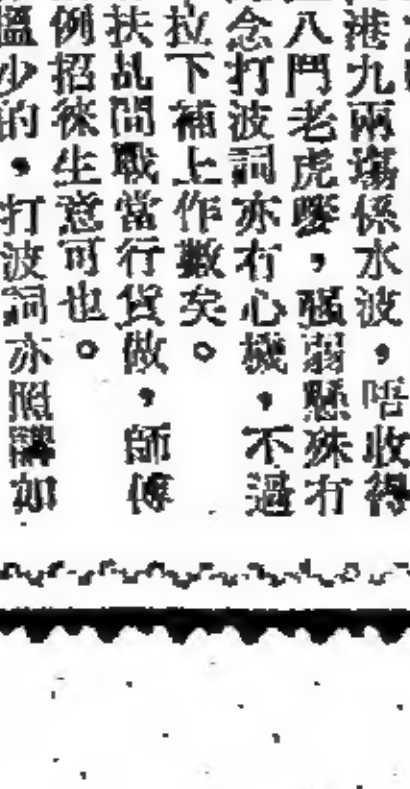 港九兩塲係水波，唔收得
八鬥老虎蟹，强弱懸殊冇
念打波詞亦冇心機，不過
拉下補上作數矣。
扶乩問戰當行貨做，師傅
例招徠生意可也。
搵沙的，打波詞亦照講如